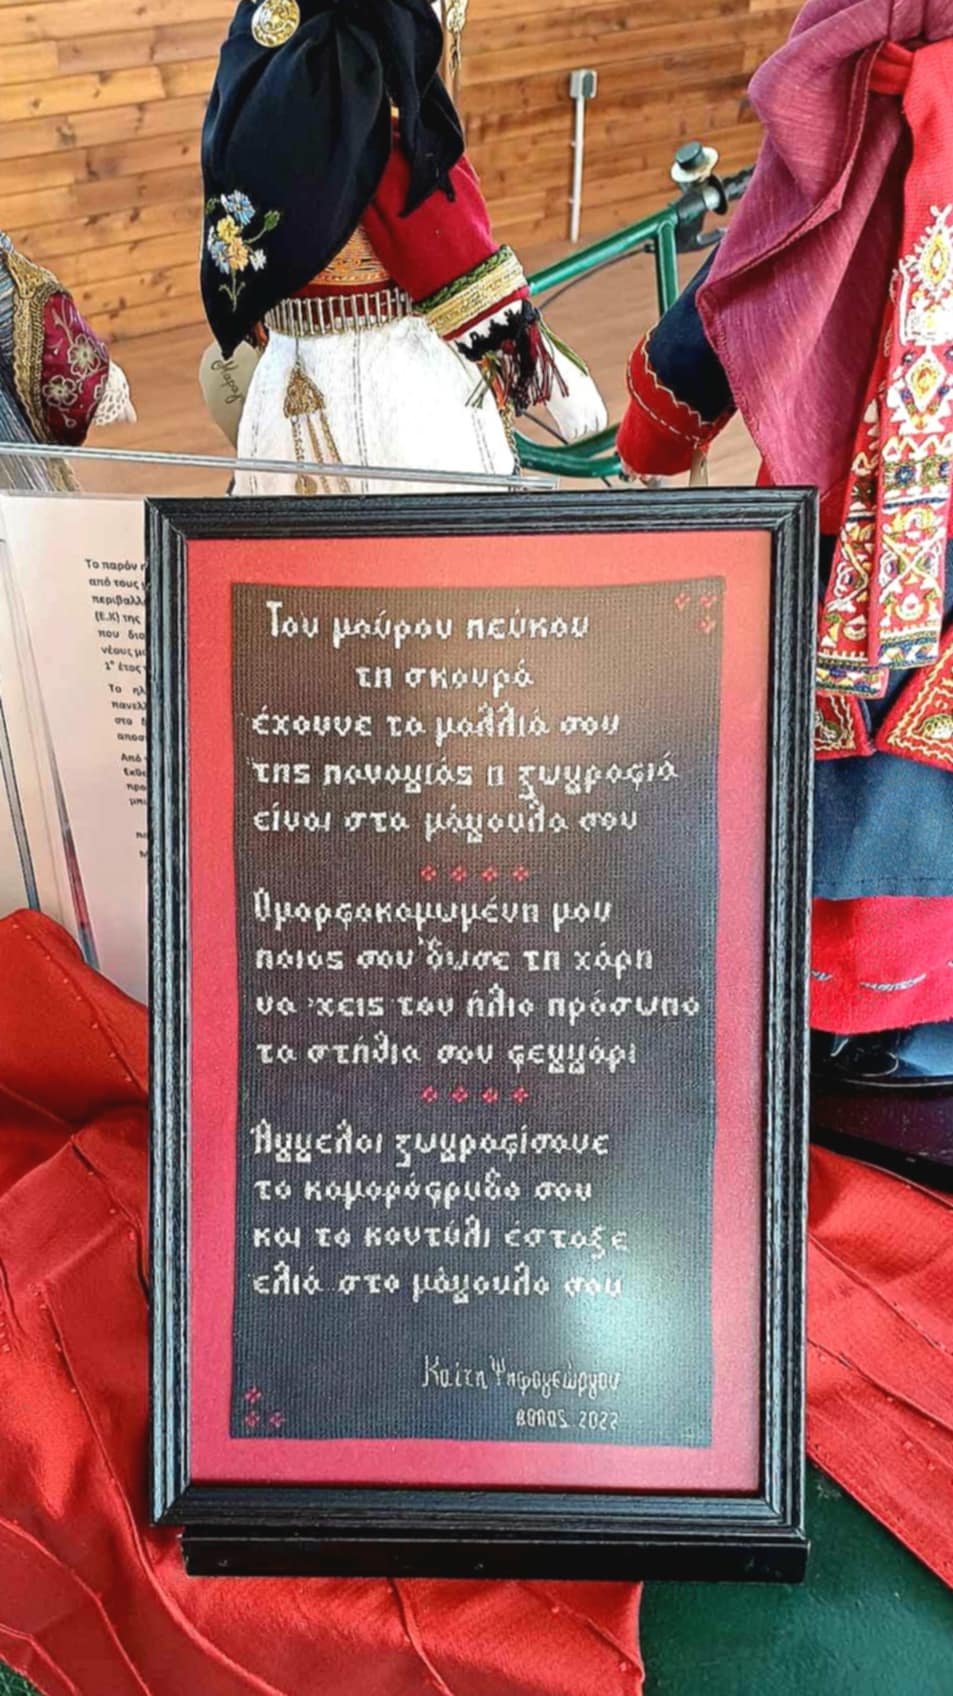 Το παρόν
από τους
περιβαλλ
(Ε.Κ) της
που διο
νέους μ
1° έτος
Το ηλ
πανελλ
στο
αποσ
Από
έκθε
προ
μπ
Του μαύρου πεύκου
τη σκουρά
έχουνε τα μαλλιά σου
της παναγιάς η ζωγραφιά
είναι στα μάγουλα σου
Ομορφοκαμωμένη μου
ποιος σου 'δωσε τη χάρη
να 'χεις τον ήλιο πρόσωπο
τα στήθια σου φεγγάρι
Άγγελοι ζωγραφίσανε
το καμαρόφρυδο σου
και το κοντύλι έσταξε
ελιά στο μάγουλο σου
Καίτη Ψηφογεώργου
ΒΟΛΟΣ 2022